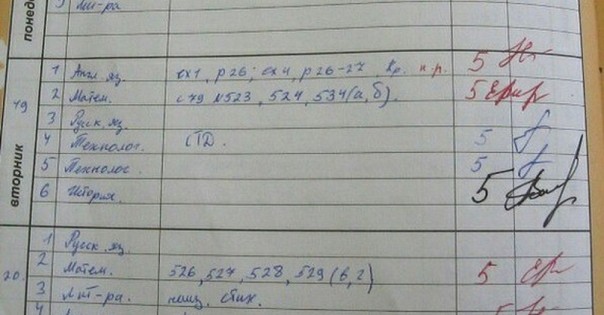 понед
5 Лит-ра
19
вторник
1 Англ. яз. ex 1, p 26; ex 4, p 26-27 кр. п.р. 5
2 Матем. с 79 № 523, 524, 534 (а, б). 5
3 Русск. яз.
4 Технолог. СТД. 5
5 Технолог. 5
6 История. 5
20.
1 Русск. яз.
2 Матем. 526, 527, 528, 529 (в, г) 5
3 Лит-ра. наиз. стих. 5
4